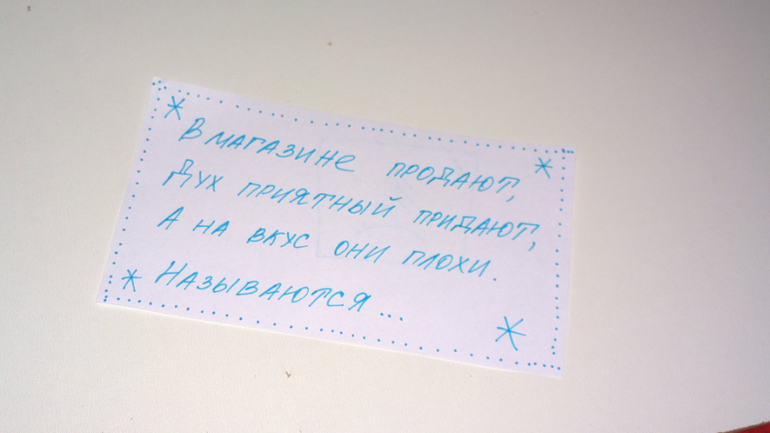 В магазине продают,
Дух приятный придают,
А на вкус они плохи.
Называются...